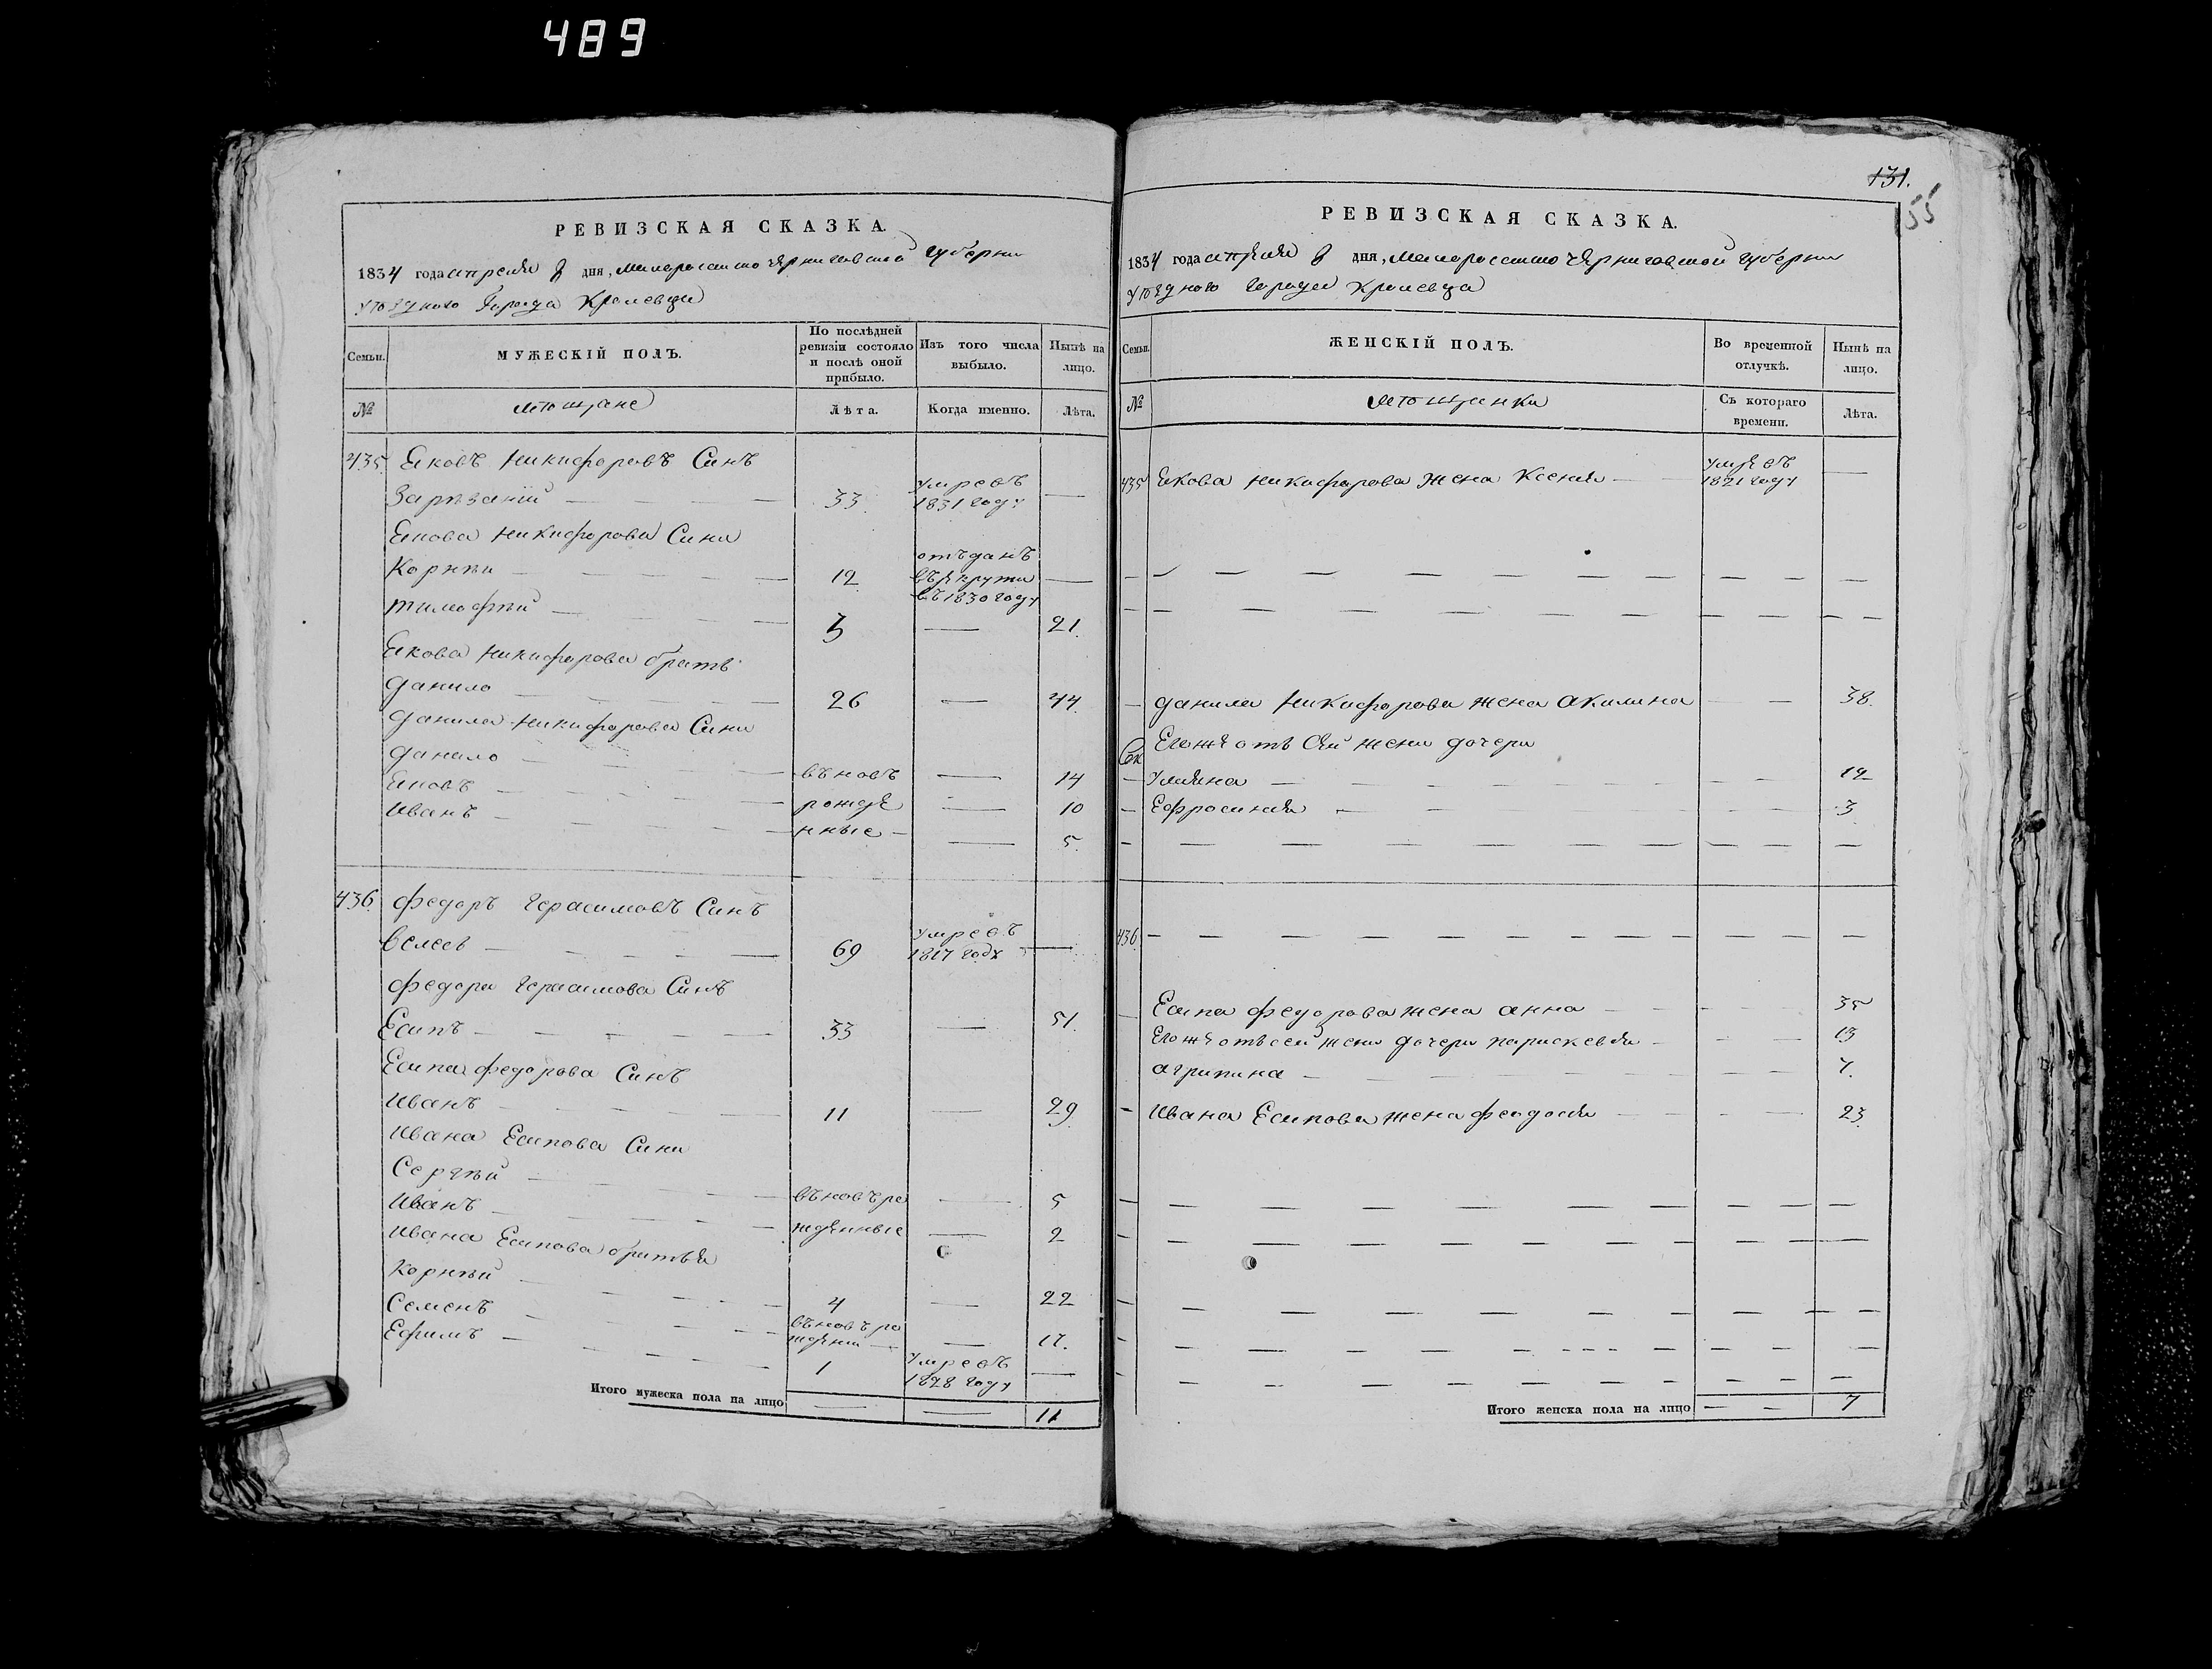 489
131.
55
РЕВИЗСКАЯ СКАЗКА.
1834 года апреля 8 дня, Малоросийско Черниговской губерни
уѣздного Города Кролевца
Семьи. МУЖЕСКІЙ ПОЛЪ. По послѣдней ревизіи состояло и послѣ оной прибыло. Изъ того числа выбыло. Нынѣ на лицо.
№ мѣщане Лѣта. Когда именно. Лѣта.
435. Яковъ Никифоровъ Синъ
Зарѣзаній — 33. умревъ 1831 году —
Якова Никифорова Сини
Корнѣи — 12 отъданъ въ рекрути въ 1830 году —
тимофѣй — 3 — 21.
Якова Никифорова братъ
данило — 26 — 44.
данила Никифорова Сини
данило — въновъ — 14
Яковъ — рожде — 10
Иванъ — нные — 5.
436. федоръ Герасимовъ Синъ
69 умревъ 1817 году —
федора Герасимова Синъ
Есипъ — 33 — 51.
Есипа федорова Синъ
Иванъ — 11 — 29.
Ивана Есипова Сини
Сергѣй — въновъ ро — 5
Иванъ — жденные — 2
Ивана Есипова братья
Корнѣй — 4 — 22
Семенъ — въновъ ро жденни — 17.
Ефимъ — 1 умревъ 1828 году —
Итого мужеска пола на лицо — — 11
РЕВИЗСКАЯ СКАЗКА.
1834 года апреля 8 дня, Малоросийско Черниговской губерни
уѣздного города Кролевца
Семьи. ЖЕНСКІЙ ПОЛЪ. Во временной отлучкѣ. Нынѣ на лицо.
№ мѣщанки Съ котораго времени. Лѣта.
435 Якова Никифорова жена Ксения — умревъ 1821 году —
— данила Никифорова жена Акилина — — 38.
Егоже отъ Сей жени дочери
— Улияна — 12
— Ефросиния — 3
436. —
Есипа федорова жена анна — 35
Егоже отъ сей жени дочери параскевия — 13
агрипина — 7.
— Ивана Есипова жена феодосия — 23.
Итого женска пола на лицо — — 7